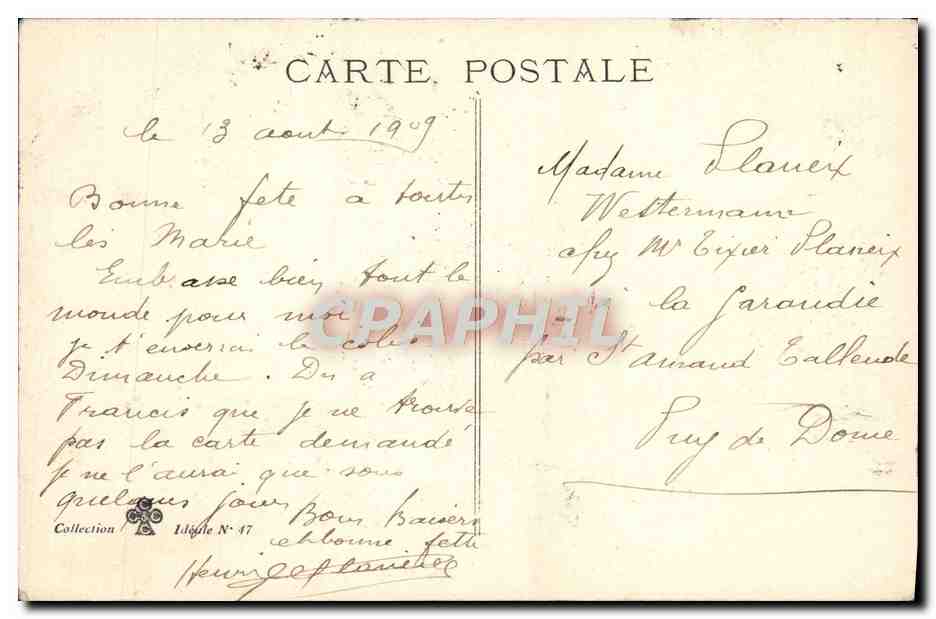 CARTE POSTALE
le 13 aout 1909
Bonne fete à toutes
les Marie
Embrasse bien tout le
monde pour moi
je t'enverrai le colis
Dimanche. Dis a
Francis que je ne trouve
pas la carte demandé
je ne l'aurai que sous
quelques jours
Bons Baisers
et bonne fette
Henri
Collection Idéale N° 47
Madame Planeix
Westermann
chez Mr Tixier Planeix
la Garandie
par St Amand Tallende
Puy de Dôme
CPAPHIL